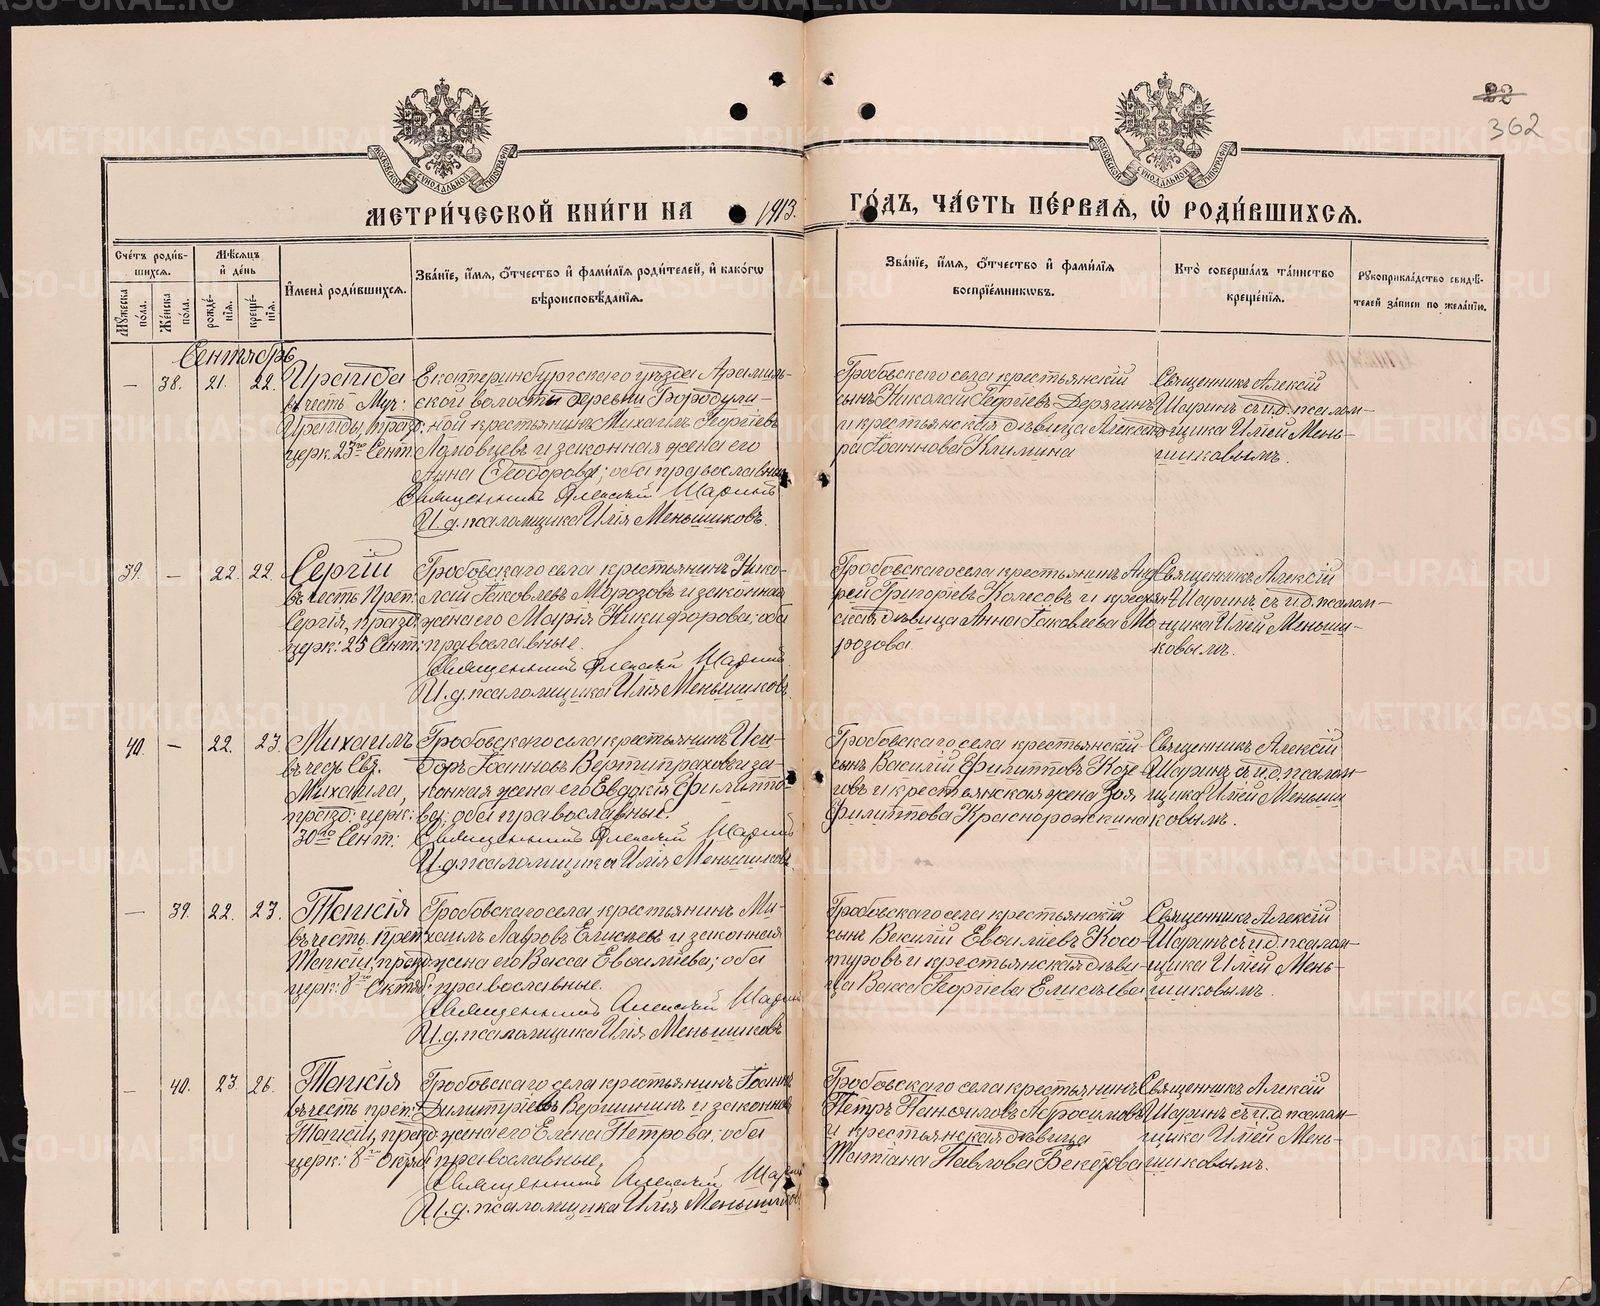 22
362
МЕТРИ́ЧЕСКОЙ КНИ́ГИ НА 1913. ГО́ДЪ, ЧА́СТЬ ПЕ́РВАѦ, Ѡ҆ РОДИ́ВШИХСѦ.
Сче́тъ роди́в-
шихсѧ.
Мꙋ́жеска по́ла.
Же́нска по́ла.
Мѣ́сѧцъ и҆ де́нь
рожде́-
нїѧ.
креще́-
нїѧ.
И҆мена̀ роди́вшихсѧ.
Зва́нїе, и҆́мѧ, ѻ҆́тчество и҆ фами́лїѧ роди́телей, и҆ како́гѡ
вѣроисповѣ́данїѧ.
Зва́нїе, и҆́мѧ, ѻ҆́тчество и҆ фами́лїѧ
воспрїе́мникѡвъ.
Кто̀ соверша́лъ та́инство
креще́нїѧ.
Рꙋкоприкла́дство свидѣ́-
телей за́писи по жела́нїю.
Сентябрь
— 38. 21. 22.
Ираида
въ честь Муч:
Ираиды, празд:
церк. 23го Сент:
Екатеринбургскаго уѣзда Арамиль-
ской волости деревни Бородули-
ной крестьянинъ Михаилъ Георгіевъ
Ломовцевъ и законная жена его
Анна Ѳеодорова; оба православные
Священникъ Алексій Шаринъ
И.д. псаломщика Илія Меньшиковъ.
Гробовскаго села крестьянскій
сынъ Николай Георгіевъ Дерягинъ
и крестьянская дѣвица Алексан-
ра Іоаннова Климина
Священникъ Алексій
Шаринъ съ и.д. псалом-
щика Иліей Мень-
шиковымъ.
39. — 22. 22.
Сергій
въ честь Преп:
Сергія, празд:
церк: 25 Сент:
Гробовскаго села крестьянинъ Нико-
лай Іаковлевъ Морозовъ и законная
жена его Марія Никифорова; оба
православные.
Священникъ Алексій Шаринъ
И.д. псаломщика Илія Меньшиковъ.
Гробовскаго села крестьянинъ Анд-
рей Григорьевъ Колесовъ и крестьян-
ская дѣвица Анна Іаковлева Мо-
розова.
Священникъ Алексій
Шаринъ съ и.д. псалом-
щика Иліей Меньши-
ковымъ.
40. — 22. 23.
Михаилъ
въ честь Свя.
Михаила,
празд: церк:
30го Сент:
Гробовскаго села крестьянинъ Иси-
доръ Іоанновъ Вертипраховъ и за-
конная жена его Евдокія Филиппо-
ва; оба православные.
Священникъ Алексій Шаринъ
И.д. псаломщика Илія Меньшиковъ
Гробовскаго села крестьянскій
сынъ Василій Филипповъ Козе-
говъ и крестьянская жена Зоя
Филиппова Краснорожкина
Священникъ Алексій
Шаринъ съ и.д. псалом-
щика Иліей Меньши-
ковымъ.
— 39. 22. 23.
Таисія
въ честь Преп:
Таисіи, празд:
церк: 8го Октяб:
Гробовскаго села крестьянинъ Ми-
хаилъ Лавровъ Елисѣевъ и законная
жена его Васса Евоиліева; оба
православные.
Священникъ Алексій Шаринъ
И.д. псаломщика Илія Меньшиковъ
Гробовскаго села крестьянскій
сынъ Василій Евоиліевъ Косо-
туровъ и крестьянская дѣви-
ца Васса Георгіева Елисѣева
Священникъ Алексій
Шаринъ съ и.д. псалом-
щика Иліей Мень-
шиковымъ.
— 40. 23. 26.
Таисія
въ честь преп:
Таисіи, празд:
церк: 8го Октяб:
Гробовскаго села крестьянинъ Іоаннъ
Димитріевъ Вершининъ и законная
жена его Елена Петрова; оба
православные.
Священникъ Алексій Шаринъ
И.д. псаломщика Илія Меньшиковъ
Гробовскаго села крестьянинъ
Петръ Панфиловъ Абросимовъ
и крестьянская дѣвица
Татіана Павлова
Священникъ Алексій
Шаринъ съ и.д. псалом-
щика Иліей Мень-
шиковымъ.
METRIKI.GASO-URAL.RU